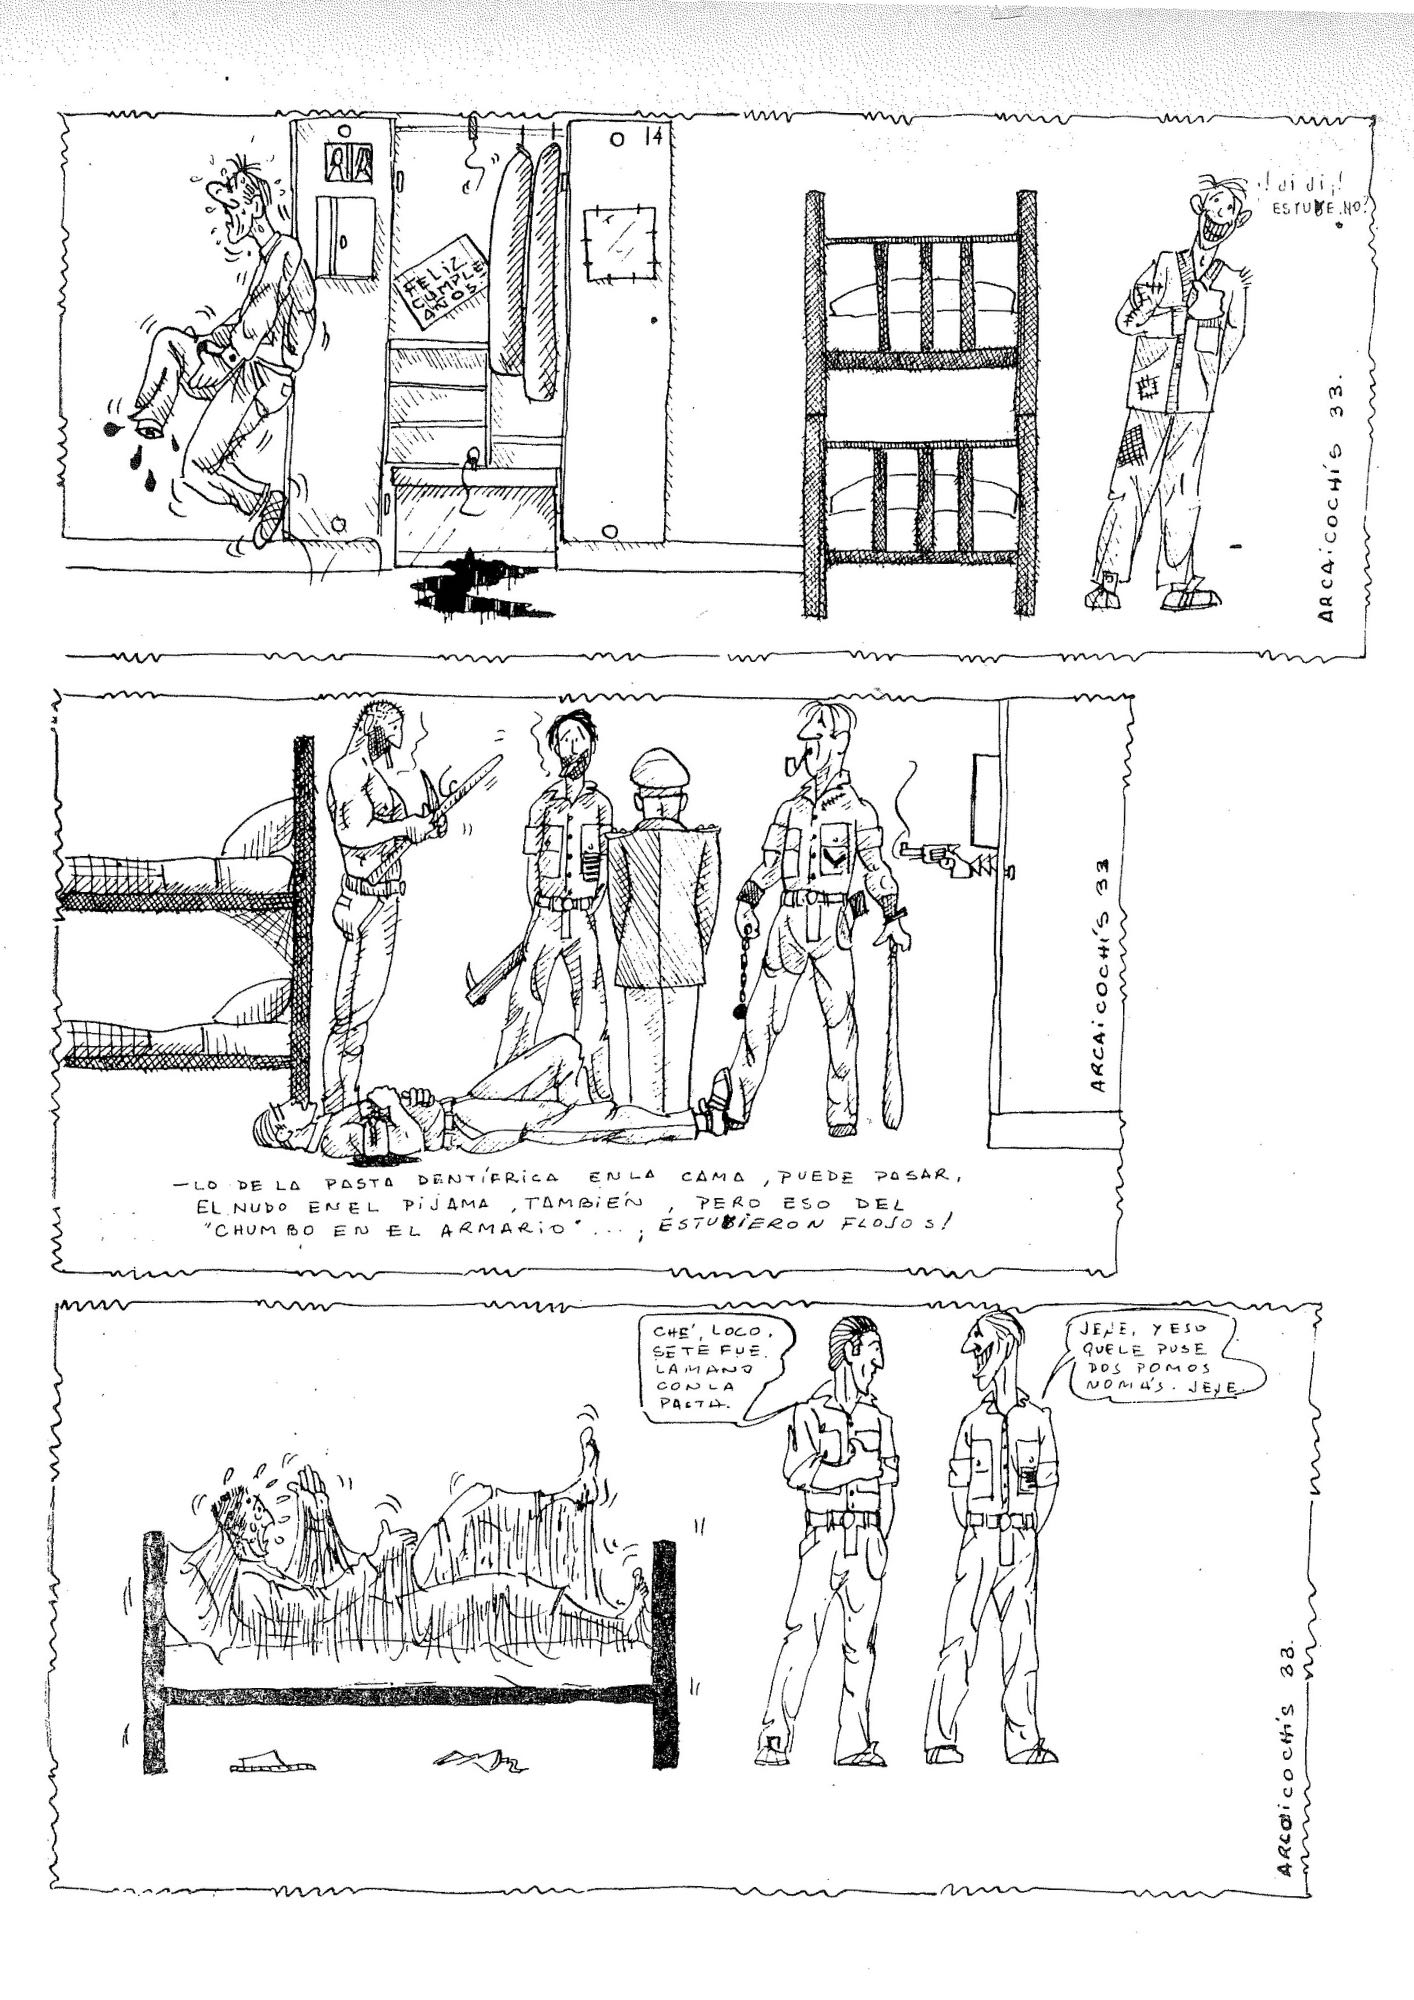 14
FELIZ
CUMPLE
AÑOS.
¡! di di ¡!
ESTUVE.NO!
ARCAiCOCHÍS 33.
—LO DE LA PASTA DENTÍFRICA EN LA CAMA, PUEDE PASAR,
EL NUDO EN EL PIJAMA, TAMBIÉN, PERO ESO DEL
"CHUMBO EN EL ARMARIO"...¡ESTUBIERON FLOJOS!
ARCAiCOCHÍS 33
CHE', LOCO.
SE TE FUE.
LA MANO
CON LA
PASTA.
JEJE, Y ESO
QUE LE PUSE
DOS POMOS
NOMÁS. JEJE.
ARCAiCOCHÍS 33.